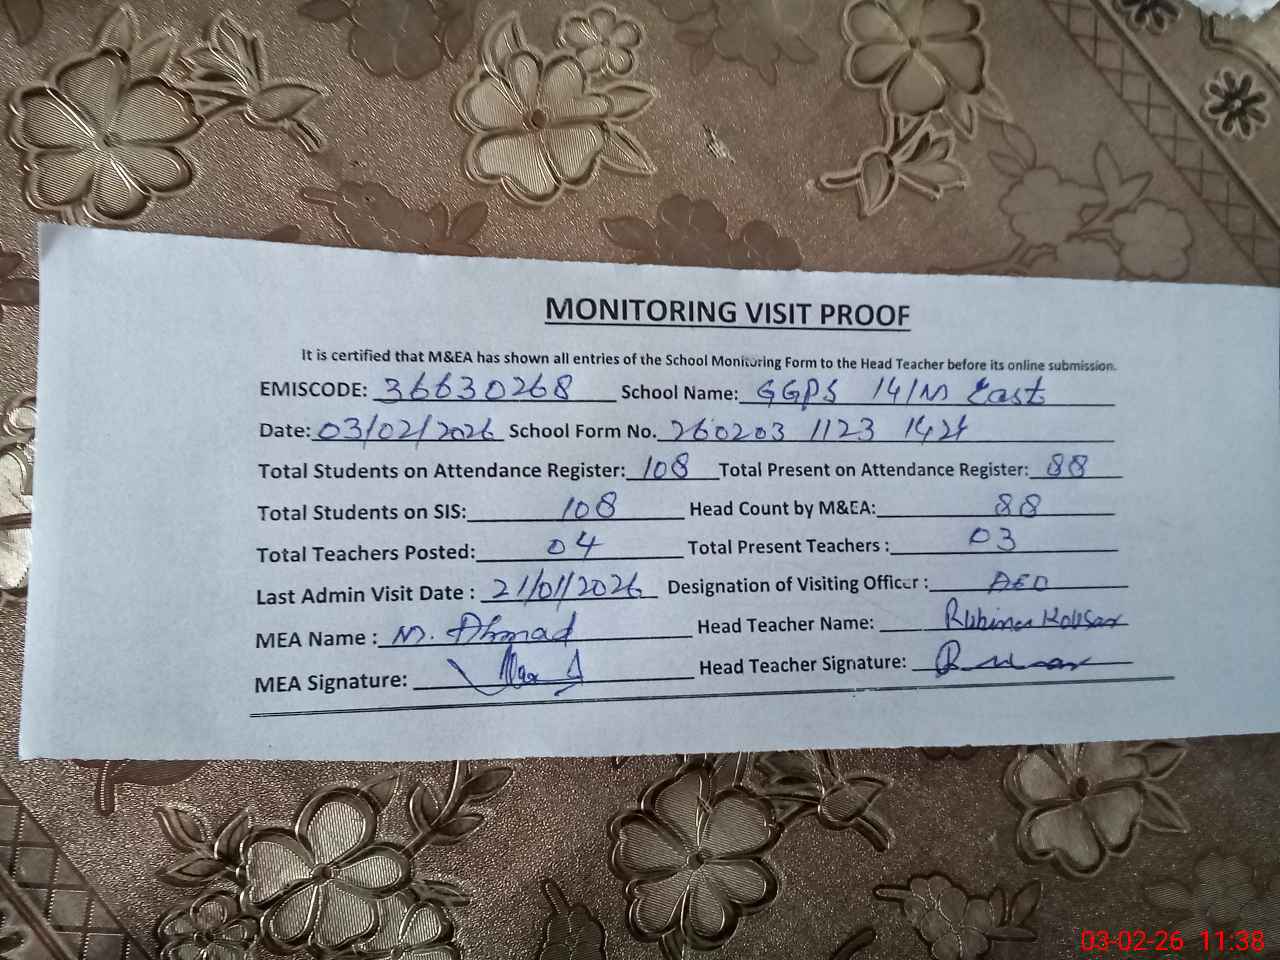 MONITORING VISIT PROOF
It is certified that M&EA has shown all entries of the School Monitoring Form to the Head Teacher before its online submission.
EMISCODE: 36630268 School Name: GGPS 141/M East
Date: 03/02/2026 School Form No. 260203 1123 1424
Total Students on Attendance Register: 108 Total Present on Attendance Register: 88
Total Students on SIS: 108 Head Count by M&EA: 88
Total Teachers Posted: 04 Total Present Teachers : 03
Last Admin Visit Date : 21/01/2026 Designation of Visiting Officer : AEO
MEA Name : M. Ahmad Head Teacher Name: Rubina Kousar
MEA Signature: Head Teacher Signature:
03-02-26 11:38